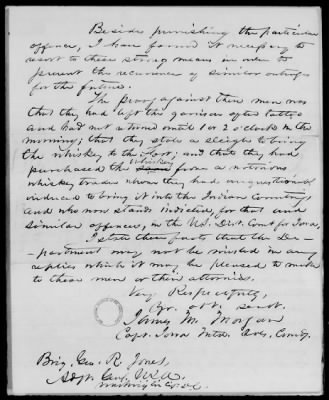 Besides punishing the particular
offence, I have found it necessary to
resort to these strong means in order to
prevent the recurrence of similar outrages
for the future.
The proof against these men was
that they had left the garrison after tattoo
and had not returned until 1 or 2 o'clock in the
morning; that they stole a sleigh to bring
the whiskey to the fort; and that they had
purchased the whiskey from a notorious
whiskey trader whom they had unquestionably
induced to bring it into the Indian Country,
and who now stands indicted, for that and
similar offences, in the U.S. Dist. Court for Iowa.
I state these facts that the De-
partment may not be misled in any
replies which it may be pleased to make
to these men or their attornies.
Very Respectfully,
Yr. obt. Servt.
James M. Morgan
Capt. Iowa Comdg.
Brig. Gen. R. Jones,
Adjt. Genl. U.S.A.
Washington